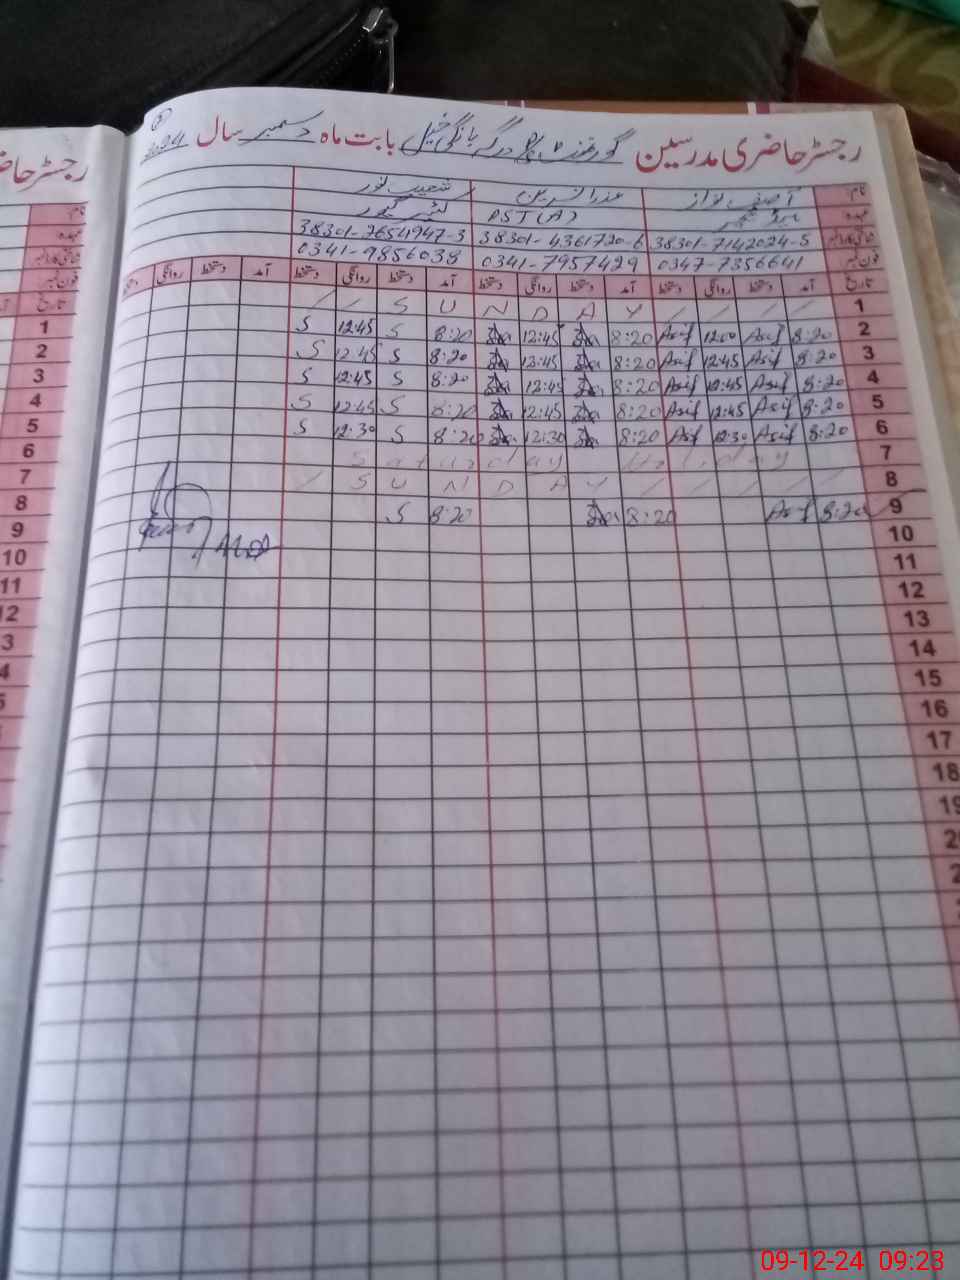 رجسٹر حاضری مدرسین گورنمنٹ درگہ بانگی خیل بابت ماہ دسمبر سال 2024
نام: آصف نواز عذرا نسرین شعیب نور
عہدہ PST(A)
شناختی کارڈ نمبر 38301-7142024-5 38301-4361720-6 38301-7654947-3
فون نمبر 0347-7356641 0341-7957429 0341-9856038
تاریخ آمد دستخط روانگی دستخط آمد دستخط روانگی دستخط آمد دستخط روانگی دستخط آمد دستخط روانگی دستخط
1 / / S U N D A Y / / / /
2 8:20 Asif 12:00 Asif 8:20 12:45 8:20 S 12:45 S
3 8:20 Asif 12:45 Asif 8:20 12:45 8:20 S 12:45 S
4 8:20 Asif 12:45 Asif 8:20 12:45 8:20 S 12:45 S
5 8:20 Asif 12:45 Asif 8:20 12:45 8:20 S 12:45 S
6 8:20 Asif 12:30 Asif 8:20 12:30 8:20 S 12:30 S
7 Saturday Holiday
8 / S U N D A Y / / / / /
9 8:20 Asif 8:20 8:20 S
10
11
12
13
14
15
16
17
18
19
09-12-24 09:23